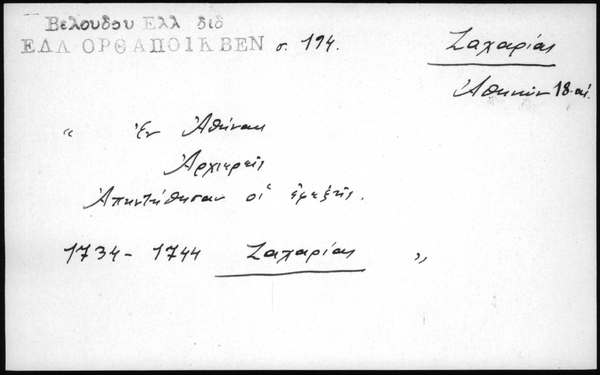 Βελουδου Ελλ διδ
ΕΛΛ ΟΡΘ ΑΠΟΙΚ ΒΕΝ σ. 194.
Ζαχαρίας
Ἀθηνῶν 18. αἰ.
" Ἐν Ἀθήναις
Ἀρχιερεῖς
Ἀπηντήθησαν οἱ ἐφεξῆς.
1734 - 1744 Ζαχαρίας "